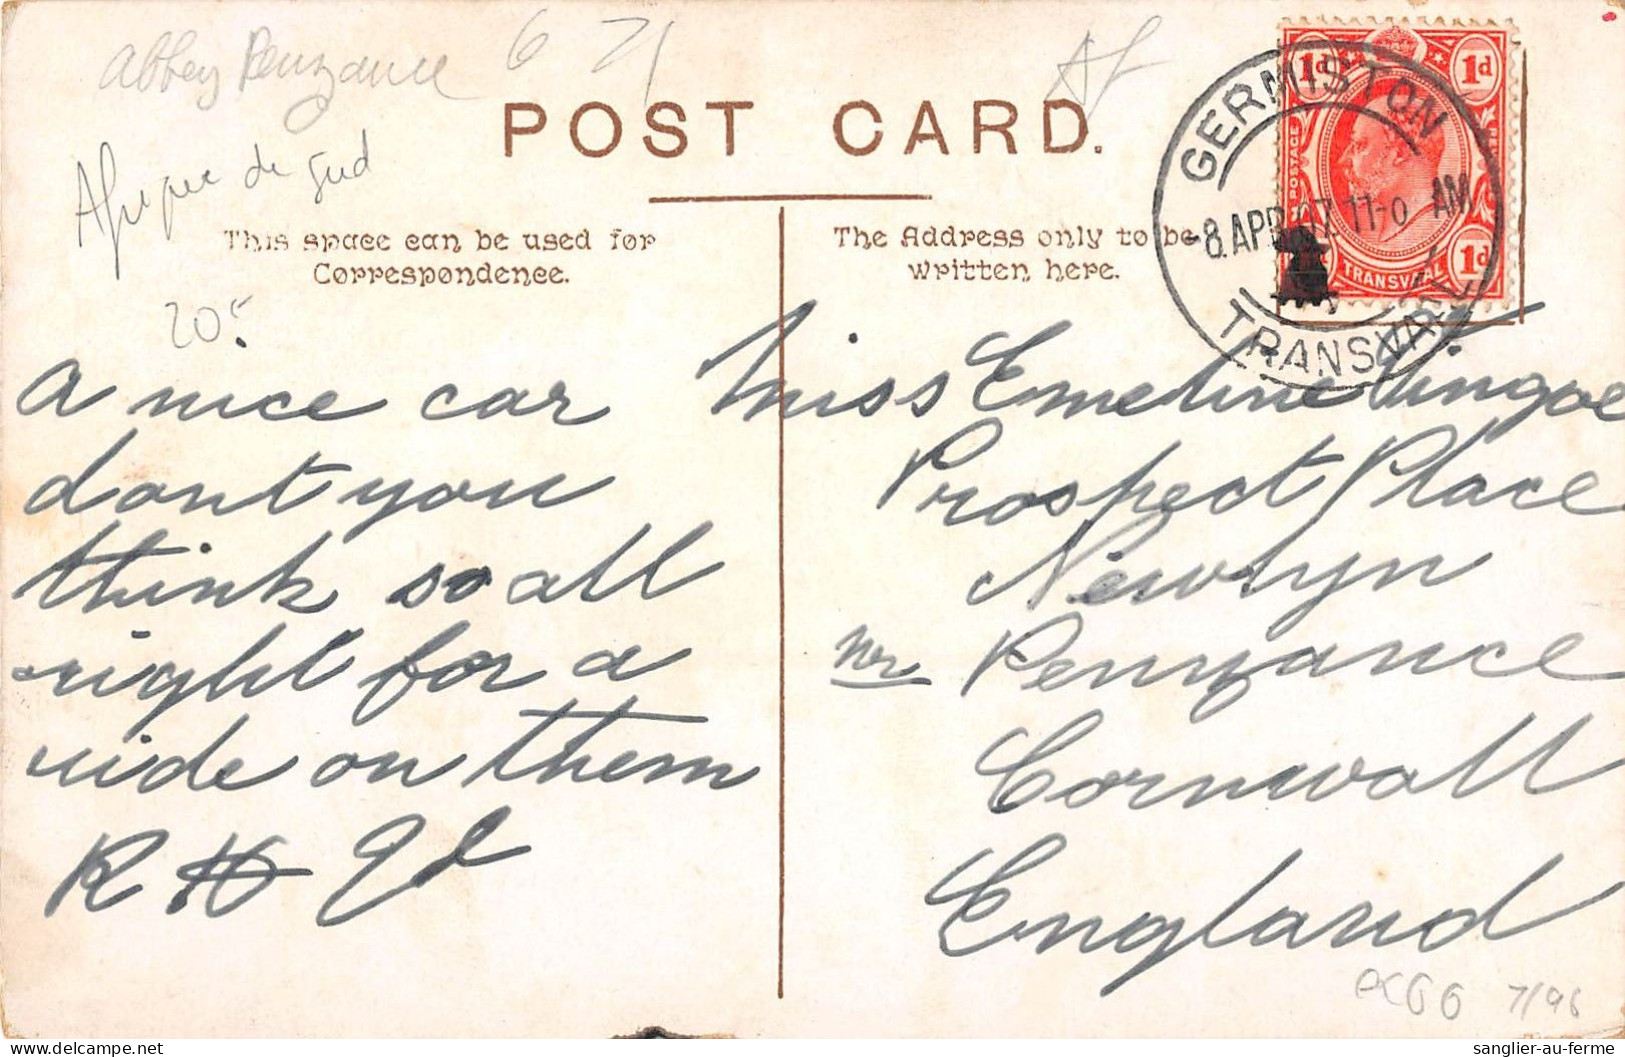 Abbey Penzance 6 71
Af
POST CARD.
Afrique du Sud
This space can be used for
Correspondence.
The Address only to be
written here.
GERMISTON
-8.APR.07.11-0 AM
TRANSVAAL
1d 1d
POSTAGE
TRANSVAAL 1d
20.
A nice car
dont you
think so all
right for a
ride on them
Miss Emeline Vingoe
Prospect Place
Newlyn
Nr Penzance
Cornwall
England
7/96
sanglier-au-ferme